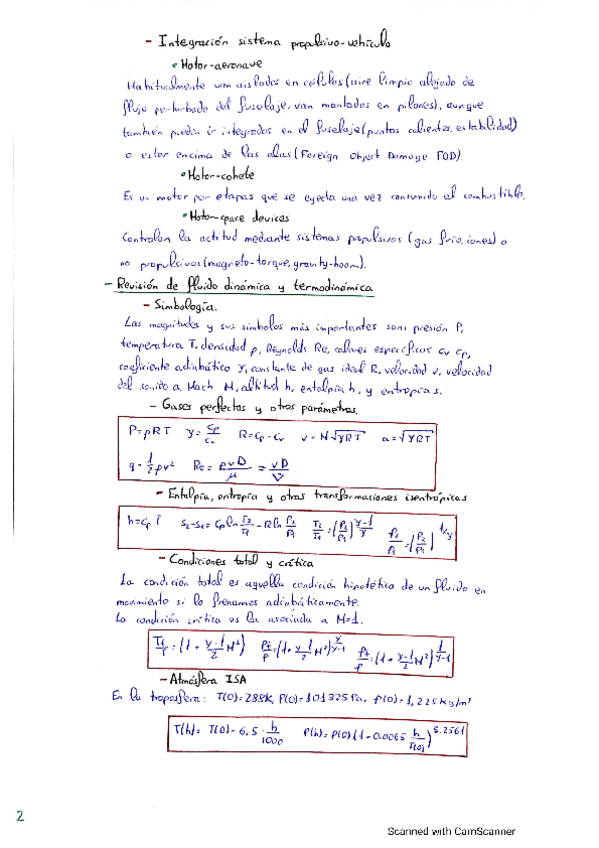 - Integración sistema propulsivo-vehículo
• Motor-aeronave
Habitualmente van aislados en células (aire limpio alejado de
flujo perturbado del fuselaje, van montados en pilones), aunque
también pueden ir integrados en el fuselaje (puntos calientes, estabilidad)
o estar encima de las alas (Foreign Object Damage FOD).
• Motor-cohete
Es un motor por etapas que se eyecta una vez consumido el combustible.
• Motor-space devices
Controlan la actitud mediante sistemas propulsivos (gas frío, iones) o
no propulsivos (magneto-torque, gravity-boom).
- Revisión de fluido dinámica y termodinámica
- Simbología.
Las magnitudes y sus símbolos más importantes son: presión P,
temperatura T, densidad ρ, Reynolds Re, calores específicos cv cp,
coeficiente adiabático γ, constante de gas ideal R, velocidad v, velocidad
del sonido a, Mach M, altitud h, entalpía h, y entropía s.
- Gases perfectos y otros parámetros.
P=ρRT γ=cp/cv R=cp-cv v=M√γRT a=√γRT
q=1/2 ρv² Re=ρvD/μ=vD/ν
- Entalpía, entropía y otras transformaciones isentrópicas
h=cp T s2-s1=cp ln T2/T1 - R ln P2/P1 T2/T1=(P2/P1)^γ-1/γ ρ2/ρ1=(P2/P1)^1/γ
- Condiciones total y crítica
La condición total es aquella condición hipotética de un fluido en
movimiento si lo frenamos adiabáticamente.
La condición crítica es la asociada a M=1.
Tt/T=(1+γ-1/2 M²) Pt/P=(1+γ-1/2 M²)^γ/γ-1 ρt/ρ=(1+γ-1/2 M²)^1/γ-1
- Atmósfera ISA
En la troposfera: T(0)=288K, P(0)=101325Pa, ρ(0)=1,225kg/m³
T(h)= T(0)-6,5·h/1000 P(h)=P(0)(1-0,0065 h/T(0))^5.2561
2
Scanned with CamScanner